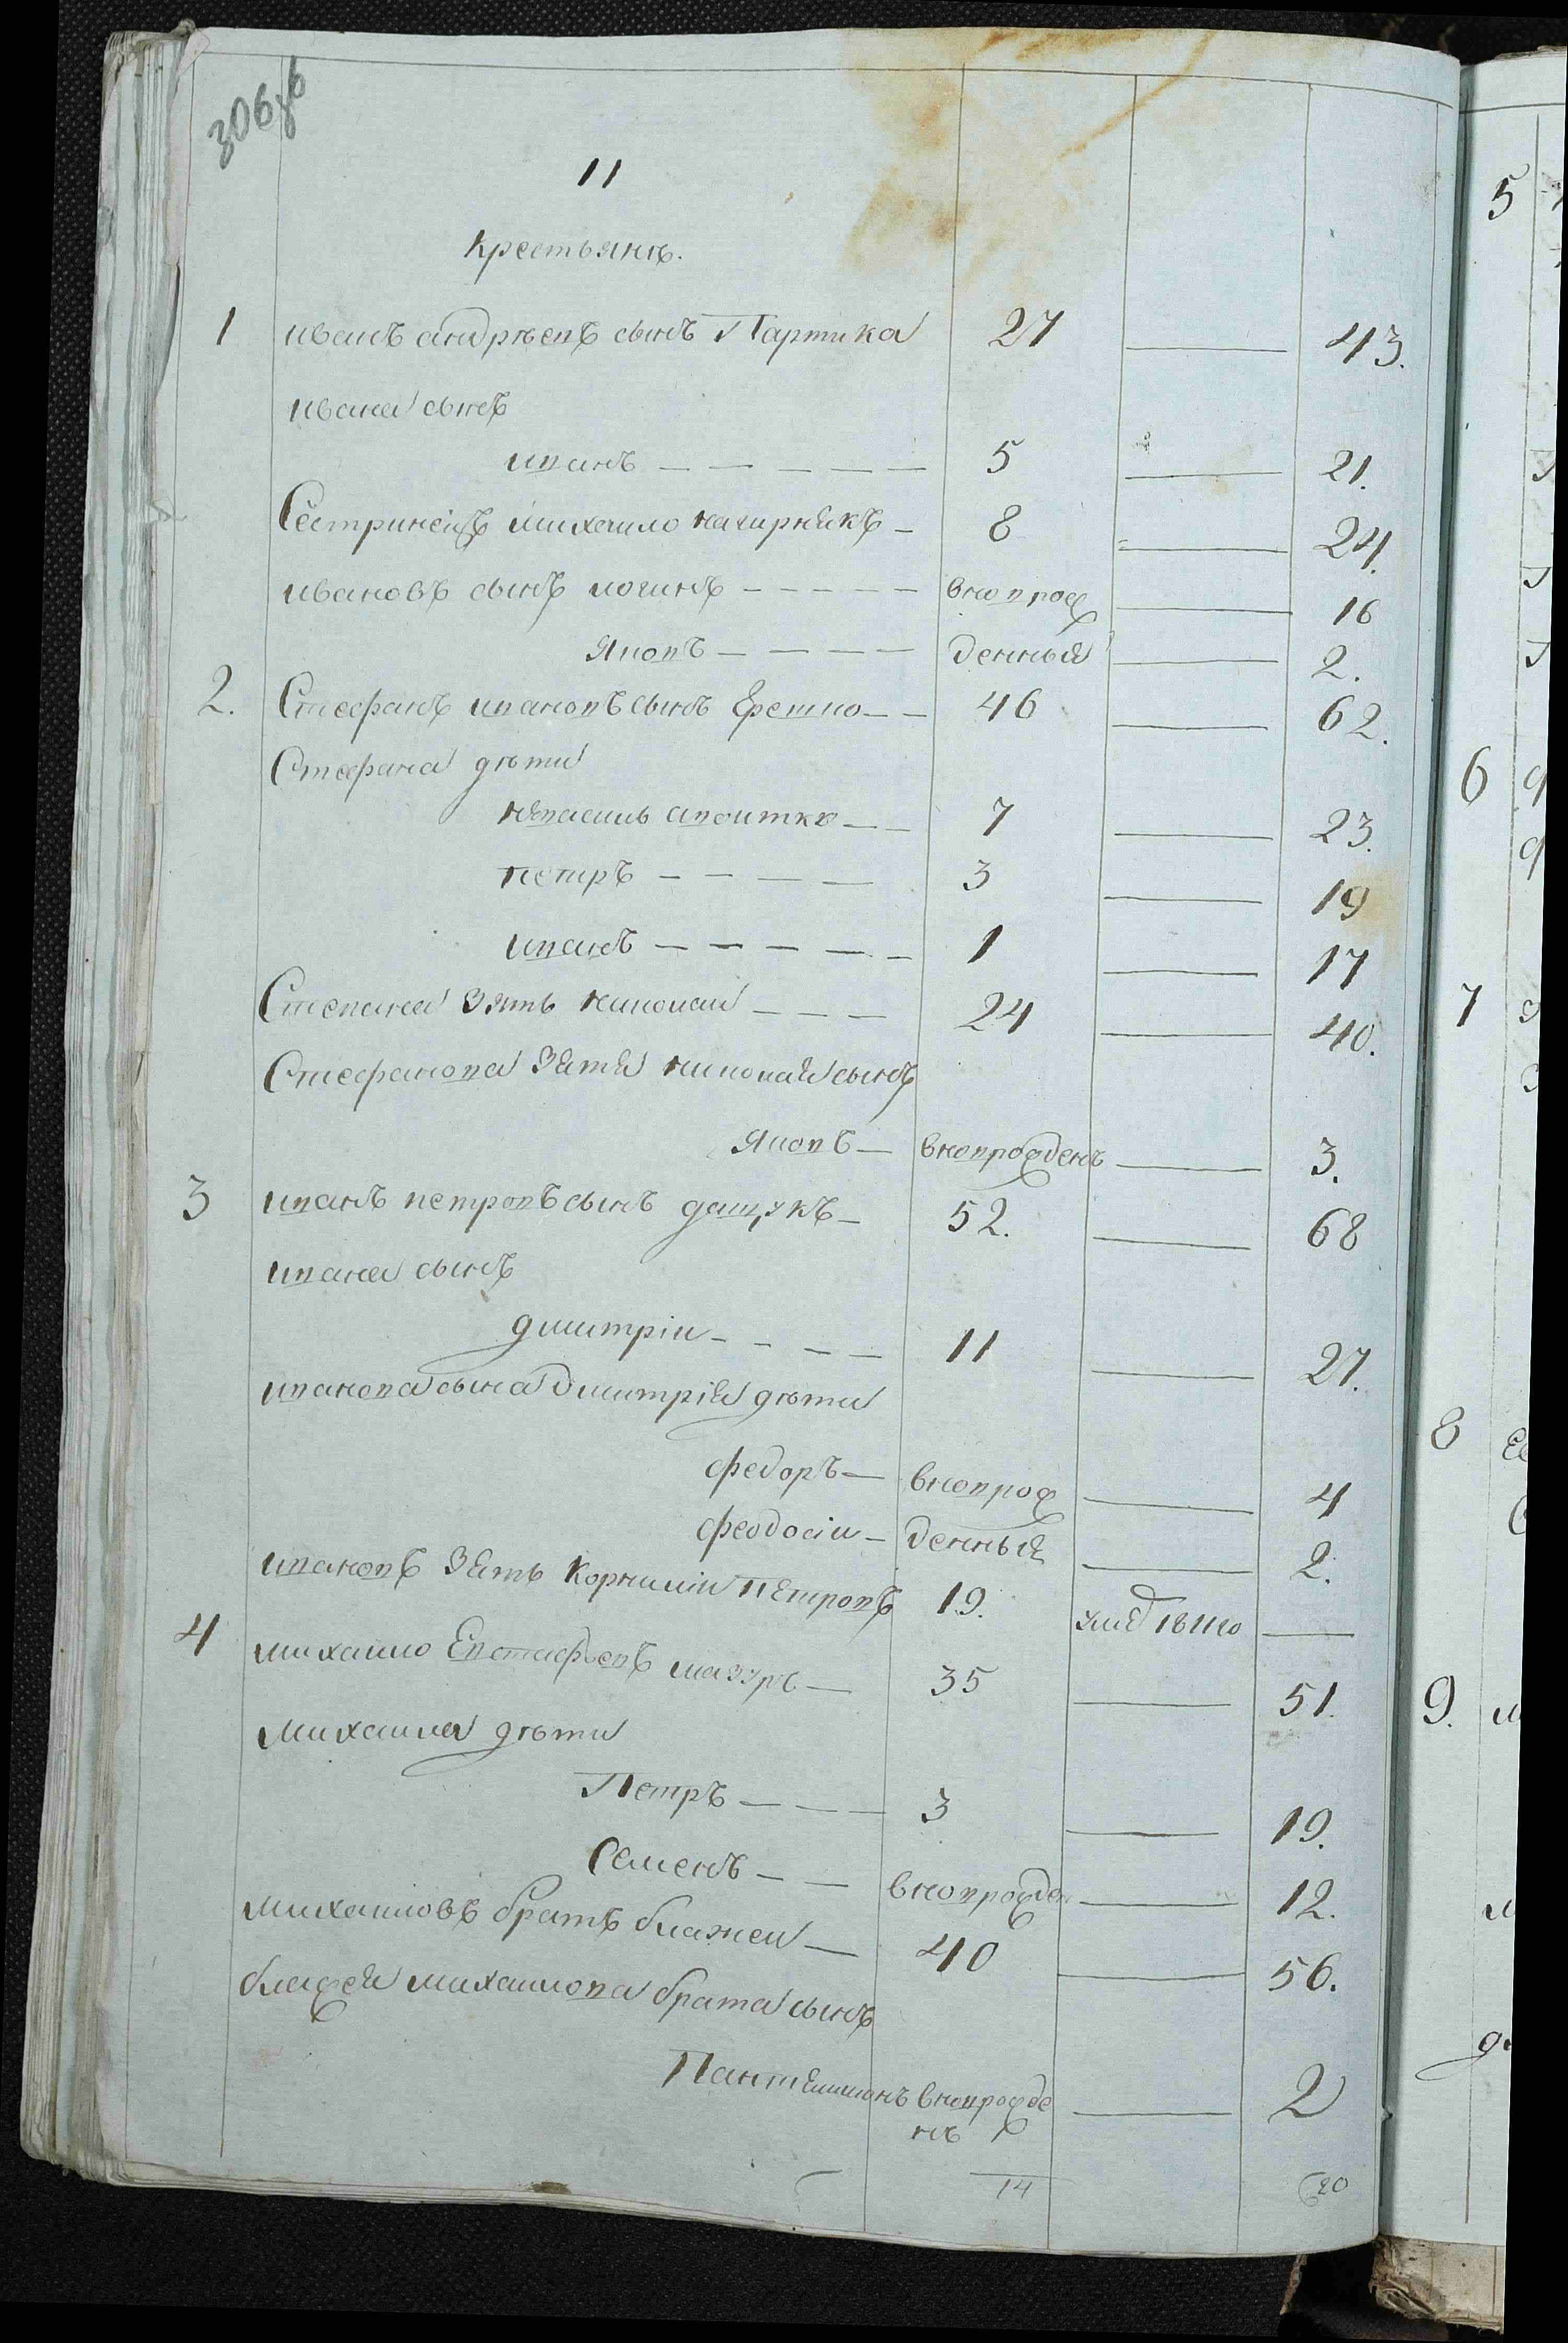 306об
11
крестьянъ.
1 иванъ андрѣевъ сынъ Партика 27 43.
ивана сынъ
иванъ 5 21.
Сестринецъ михаило 8 24.
ивановъ сынъ логинъ вновьрож 16
яковъ денныя 2.
2. Стефанъ ивановъ сынъ Еремко 46 62.
Стефана дѣти
7 23.
петръ 3 19
иванъ 1 17
Степана зять николай 24 40.
Стефанова зятя николая сынъ
яковъ вновьрожденъ 3.
3 иванъ петровъ сынъ дацукъ 52. 68
ивана сынъ
дмитрій 11 27.
иванова сына дмитрія дѣти
федоръ вновьрож 4
феодосій денныя 2.
ивановъ зять корнилій петровъ 19. умѣ 1811го
4 михаило Евстафьевъ мазуръ 35 51.
михаила дѣти
Петръ 3 19.
Семенъ вновьрожден 12.
михаиловъ братъ блажей 40 56.
блажея михаилова брата сынъ
Пантелимонъ вновьрожде 2
нъ
14 20
5
6
7
8
9.